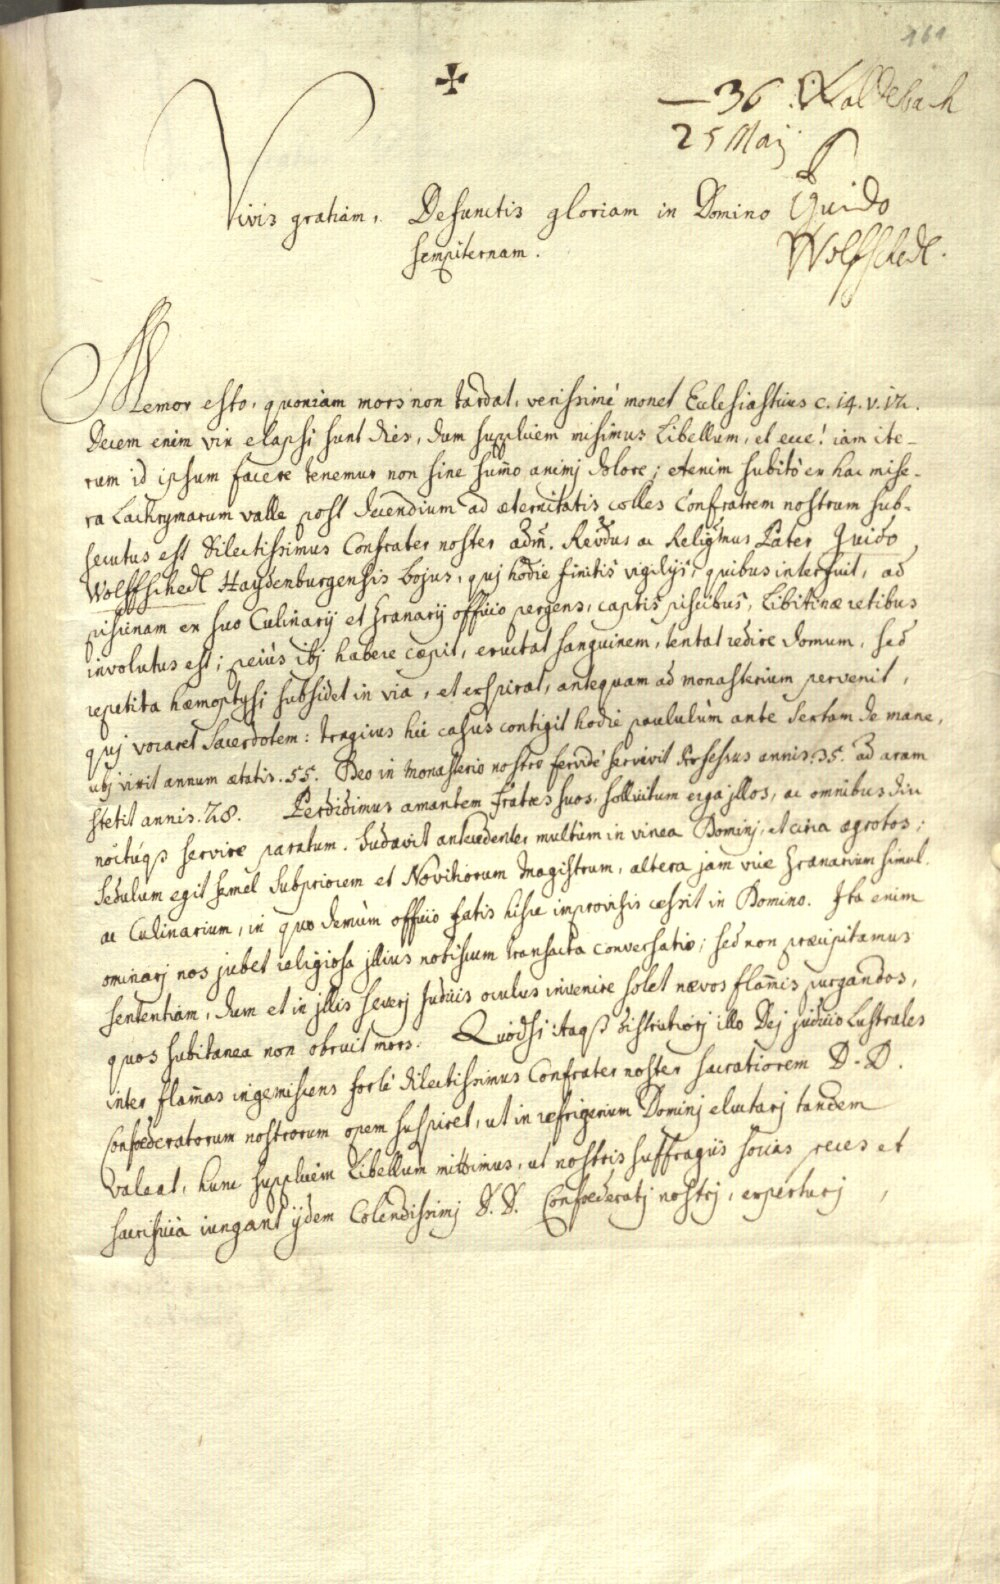 161
✠
— 36 Waldsbach
25 Maij
Vivis gratiam, Defunctis gloriam in Domino Guido
sempiternam. Wolffschedl.
Memor esto, quoniam mors non tardat, verissimè monet Ecclesiasticus c. 14. v. 12.
Decem enim vix elapsi sunt dies, dum supplicem misimus Libellum, et ecce! iam ite-
rum id ipsum facere tenemur non sine sum̄o animj dolore; etenim subitò ex hac mise-
ra Lachrymarum valle post decendium ad æternitatis colles Confratrem nostrum sub-
secutus est dilectissimus Confrater noster adm̄. Rev̄dus ac Relig̃mus Pater Guido
Wolffschedl Haydenburgensis bojus, quj hodie finitis vigilijs, quibus interfuit, ad
piscinam ex suo Culinarij et Granarij officio pergens, captis piscibus, Libitinæ retibus
involutus est; peiùs ibj habere cœpit, eructat sanguinem, tentat redire domum, sed
repetita hæmoptysi subsidet in via, et exspirat, antequam ad monasterium pervenit,
quj vocaret Sacerdotem: tragicus hic casus contigit hodie paululùm ante Sextam de mane,
ubj vixit annum ætatis. 55. Deo in Monasterio nostro fervidè servivit Professus annis. 35. ad aram
stetit annis. 28. Perdidimus amantem fratres suos, sollicitum erga jllos, ac omnibus diu
noctúqз servire paratum. Sudavit antecedenter multùm in vinea Dominj, et circa ægrotos;
Sedulum egit semel Subpriorem et Novitiorum Magistrum, altera jam vice Granarium simul
ac Culinarium, in quo demùm officio fatis hisce improvisis cessit in Domino. Ita enim
ominarj nos jubet religiosa jllius notiscum transacta conversatio; sed non præcipitamus
sententiam, dum et in jllis severj Judicis oculus invenire solet nævos flam̄is purgandos,
quos subitanea non obruit mors. Quòdsi itaqз districtiorj illo Dej judicio Lustrales
inter flam̄as ingemiscens fortè dilectissimus Confrater noster sacratiorem D. D.
Confœderatorum nostrorum opem suspiret, ut in refrigerium Dominj eluctarj tandem
valeat, hunc supplicem Libellum mittimus, ut nostris suffragijs socias preces et
sacrificia iungant ijdem Colendissimj D. D. Confœderatj nostrj, expertarj